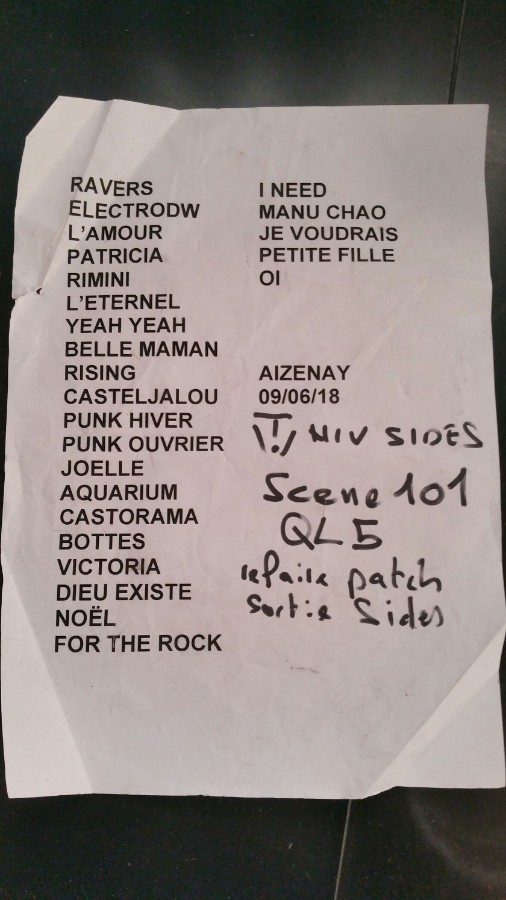 RAVERS
ELECTRODW
L'AMOUR
PATRICIA
RIMINI
L'ETERNEL
YEAH YEAH
BELLE MAMAN
RISING
CASTELJALOU
PUNK HIVER
PUNK OUVRIER
JOELLE
AQUARIUM
CASTORAMA
BOTTES
VICTORIA
DIEU EXISTE
NOËL
FOR THE ROCK
I NEED
MANU CHAO
JE VOUDRAIS
PETITE FILLE
OI
AIZENAY
09/06/18
NIV SIDES
Scene 101
QL5
refaire patch
Sortie Sides